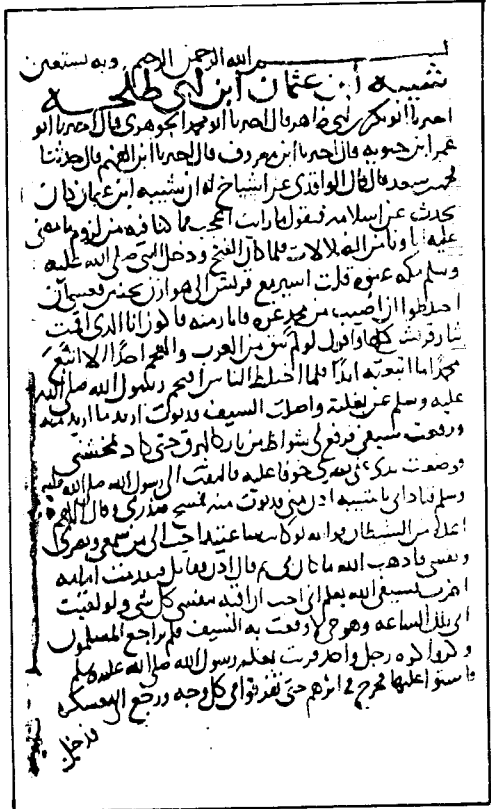 بسم الله الرحمن الرحيم وبه نستعين
شيبه ابن عثمان ابن ابي طلحه
اخبرنا ابو بكر بن ابي طاهر قال اخبرنا ابو محمد الجوهري قال اخبرنا ابو
عمر ابن حيويه قال اخبرنا ابن معروف قال اخبرنا ابن الفهم قال حدثنا
محمد بن سعد قال قال الواقدي عن اشياخ له ان شيبه ابن عثمان كان
يحدث عن اسلامه فيقول ما رايت اعجب مما كنا فيه من لزوم ما مضى
عليه اباونا من الضلالات فلما كان الفتح ودخل النبي صلى الله عليه
وسلم مكه عنوه قلت اسير مع قريش الى هوازن بحنين فعسى ان
اختلطوا ان اصيب من محمد غره فاثار منه فاكون انا الذي اقمت
بثار قريش كلها واقول لو لم يبق من العرب والعجم احد الا اتبع
محمدا ما اتبعته ابدا فلما اختلط الناس اقتحم رسول الله صلى الله
عليه وسلم عن بغلته واصلت السيف ودنوت اريد ما اريد منه
ورفعت سيفي فرفع لي شواظ من نار كالبرق حتى كاد يمحشني
فوضعت يدي على بصري خوفا عليه فالتفت الي رسول الله صلى الله عليه
وسلم فنادى يا شيبه ادن مني فدنوت منه فمسح صدري وقال اللهم
اعذه من الشيطان فوالله لهو كان ساعتيذ احب الي من سمعي وبصري
ونفسي فاذهب الله ما كان بي ثم قال ادن فقاتل فتقدمت امامه
اضرب بسيفي الله يعلم اني احب ان اقيه بنفسي كل شي ولو لقيت
ابي تلك الساعه وهو حي لاوقعت به السيف فلما تراجع المسلمون
وكروا كره رجل واحد قربت بغله رسول الله صلى الله عليه وسلم
فاستوى عليها فخرج في اثرهم حتى تفرقوا في كل وجه ورجع الى معسكره
فدخل